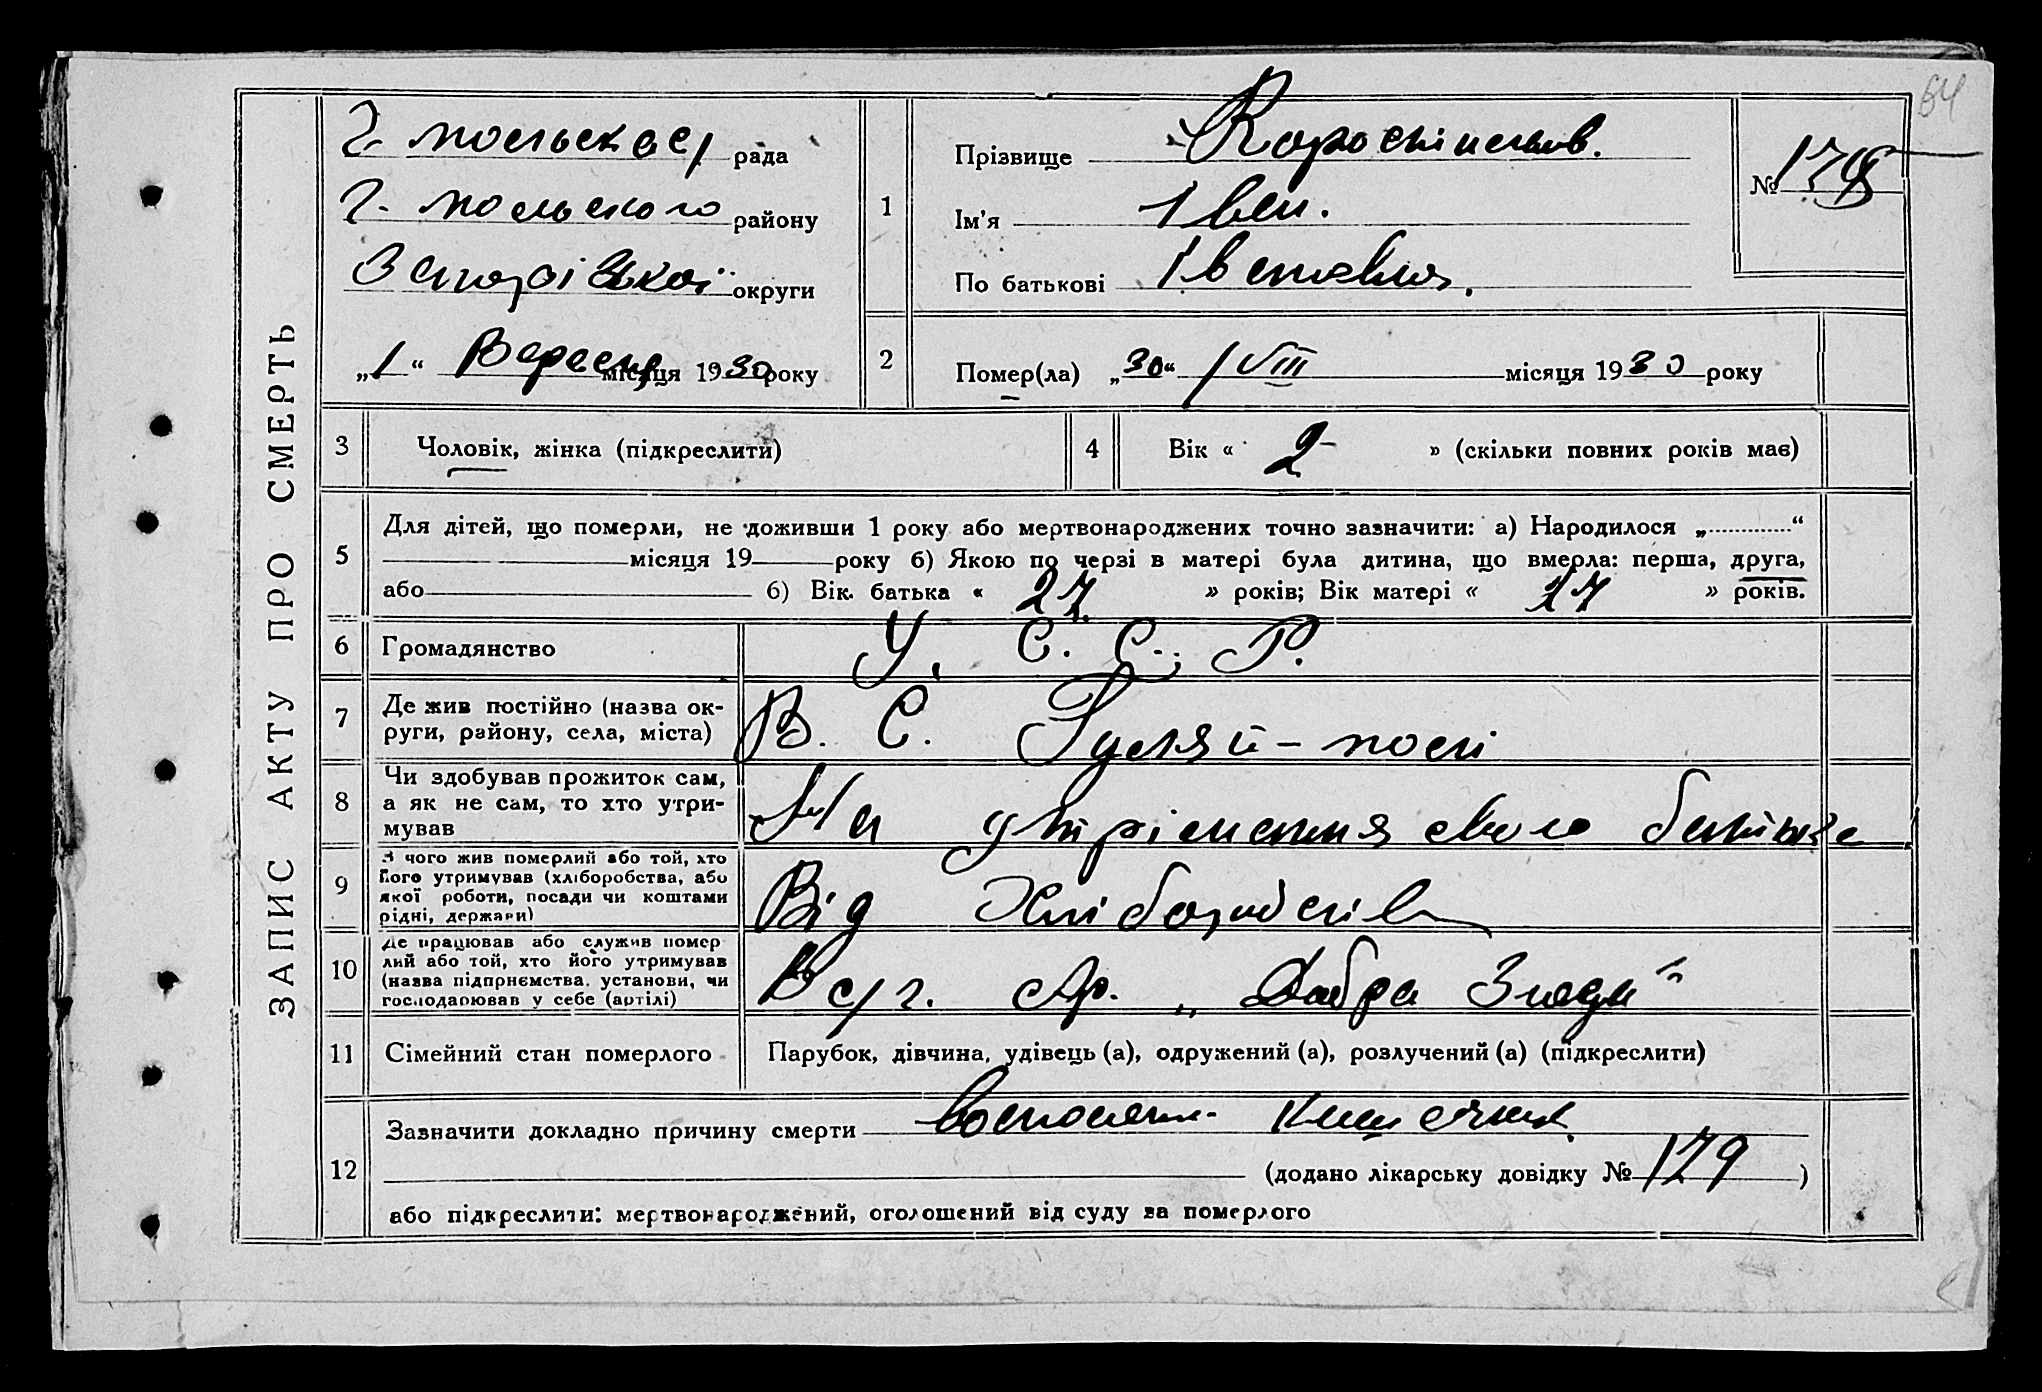 64
ЗАПИС АКТУ ПРО СМЕРТЬ
Г. Польська с/ рада
Г. Польського району
Запорізької округи
„1“ Вересня місяця 1930 року
1
Прізвище
Ім'я Іван.
По батькові Іванович.
№ 178
2
Помер(ла) „30“ / VIII місяця 1930 року
3
Чоловік, жінка (підкреслити)
4
Вік « 2 » (скільки повних років має)
5
Для дітей, що померли, не доживши 1 року або мертвонароджених точно зазначити: а) Народилося „ “
місяця 19 року б) Якою по черзі в матері була дитина, що вмерла: перша, друга,
або б) Вік батька « 27 » років; Вік матері « 27 » років.
6
Громадянство
У. С. С. Р.
7
Де жив постійно (назва ок-
руги, району, села, міста)
В. С. Гуляй-полі
8
Чи здобував прожиток сам,
а як не сам, то хто утри-
мував
На утріманння свого батька
9
З чого жив померлий або той, хто
його утримував (хліборобства, або
якої роботи, посади чи коштами
рідні, держави)
Від
10
Де працював або служив помер
лий або той, хто його утримував
(назва підприємства, установи, чи
господарював у себе (артілі)
В с/г. Ар. „Добра Згода“
11
Сімейний стан померлого
Парубок, дівчина, удівець (а), одружений (а), розлучений (а) (підкреслити)
12
Зазначити докладно причину смерти воспален. кишечник.
(додано лікарську довідку № 179 )
або підкреслити: мертвонароджений, оголошений від суду за померлого